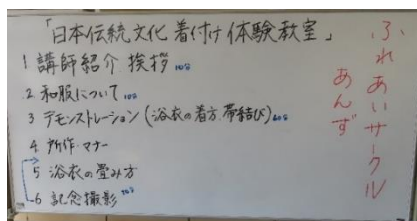 「日本伝統文化 着付け体験教室」
1 講師紹介 挨拶 10分
2 和服について 10分
3 デモンストレーション(浴衣の着方、帯結び)
4 所作・マナー
5 浴衣の畳み方
6 記念撮影 10分
ふれあいサークル
あんず